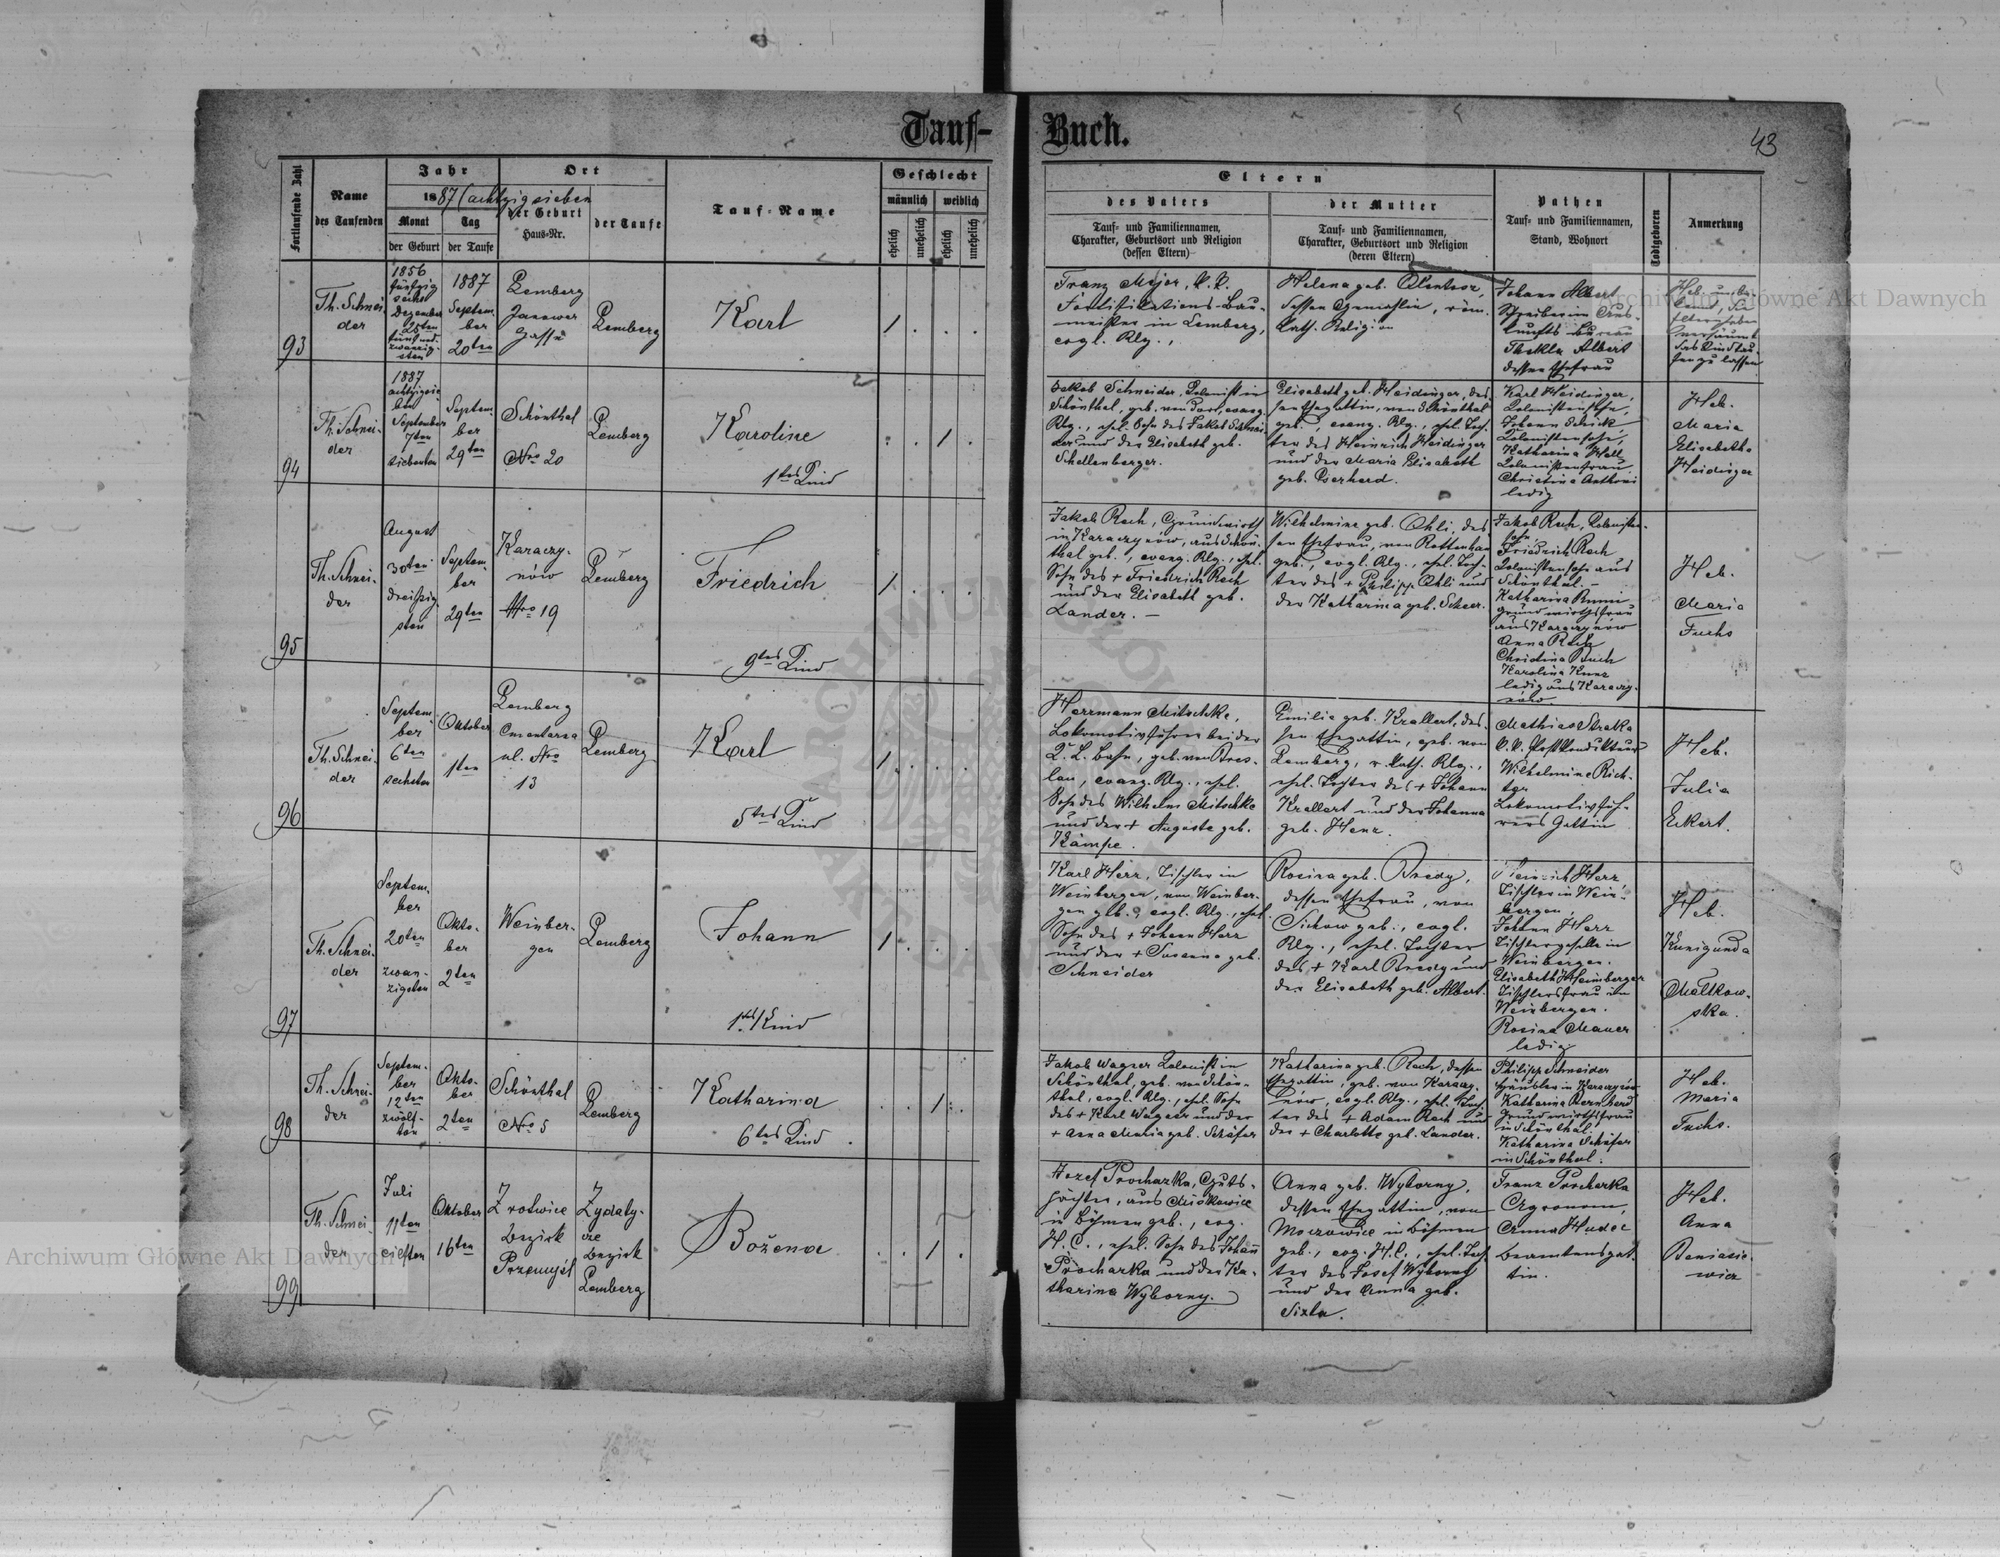 Tauf-
Buch.
43
Fortlaufende Zahl
Name
des Taufenden
Jahr
1887 (achtzigsieben
Monat
der Geburt
Tag
der Taufe
Ort
der Geburt
Haus-Nr.
der Taufe
Tauf-Name
Geschlecht
männlich
weiblich
ehelich
unehelich
ehelich
unehelich
Eltern
des Vaters
Tauf- und Familiennamen,
Charakter, Geburtsort und Religion
(dessen Eltern)
der Mutter
Tauf- und Familiennamen,
Charakter, Geburtsort und Religion
(deren Eltern)
Pathen
Tauf- und Familiennamen,
Stand, Wohnort
Todtgeboren
Anmerkung
93
Th. Schnei-
der
1856
fünfzig
sechs
Dezember
25ten
fünf und
zwanzig-
sten
1887
Septem-
ber
20ten
Lemberg
Janower
Gasse
Lemberg
Karl
1 . . .
Franz Major, k. k.
Fortifikations-Bau-
meister in Lemberg,
evgl. Rlg.,
Helena geb.
dessen Gemahlin, röm.
kath. Religion
Johann Albert
Schreiber im Aus-
kunfts-bureau
Thekla Albert
dessen Ehefrau
Heb.
94
Th. Schnei-
der
1887
achtzigsie-
ben
September
7ten
siebenten
Septem-
ber
29ten
Schönthal
Nro 20
Lemberg
Karoline
1tes Kind
. . 1 .
Jakob Schneider, Kolonist in
Schönthal, geb. von dort, evang.
Rlg., ehel. Sohn des Jakob Schnei-
der und der Elisabeth geb.
Schellenberger.
Elisabeth geb. Heidinger, des-
sen Ehegattin, von Schönthal
geb., evang. Rlg., ehel. Toch-
ter des Heinrich Heidinger
und der Maria Elisabeth
geb.
Karl Heidinger,
Kolonistensohn,
Johann Schick
Kolonistensohn,
Katharina
Kolonistenfrau
Christina
ledig
Heb.
Maria
Elisabetha
Heidinger
95
Th. Schnei-
der
August
30ten
dreißig-
sten
Septem-
ber
29ten
Karaczy-
nów
Nro 19
Lemberg
Friedrich
9tes Kind
1 . . .
Jakob Rech, Grundwirth
in Karaczynów, aus Schön-
thal geb., evang. Rlg., ehel.
Sohn des + Friedrich Rech
und der Elisabeth geb.
Lander. —
Wilhelmine geb. Ohli, des-
sen Ehefrau, von Rottenhan
geb., evgl. Rlg., ehel. Toch-
ter des + Philipp Ohli und
der Katharina geb. Scheer.
Jakob Rech, Kolonisten-
sohn,
Friedrich Rech
Kolonistensohn aus
Schönthal. —
Katharina
Grundwirthsfrau
aus Karaczynów
Anna Rech
Christina
Karolina Kunz
ledig aus Karaczy-
nów
Heb.
Maria
Fuchs
96
Th. Schnei-
der
Septem-
ber
6ten
sechsten
Oktober
1ten
Lemberg
Cmentarna
ul. Nro
13
Lemberg
Karl
5tes Kind
1 . . .
Herrmann Mitschke,
Lokomotivführer bei der
K. L. Bahn, geb. von Bres-
lau, evang. Rlg., ehel.
Sohn des Wilhelm Mitschke
und der + Auguste geb.
Kämpe.
Emilia geb. Krallert, des-
sen Ehegattin, geb. von
Lemberg, r. kath. Rlg.,
ehel. Tochter des + Johann
Krallert und der Johanna
geb. Henz.
Mathias Straka
k. k. Postkondukteur
Wilhelmine Rich-
ter
Lokomotivfüh-
rers Gattin
Heb.
Julia
Eckert.
97
Th. Schnei-
der
Septem-
ber
20ten
zwan-
zigsten
Okto-
ber
2ten
Weinber-
gen
Lemberg
Johann
1tes Kind
1 . . .
Karl Herz, Tischler in
Weinbergen, von Weinber-
gen geb., evgl. Rlg., ehel.
Sohn des + Johann Herz
und der + Susanna geb.
Schneider
Rosina geb. Bredy,
dessen Ehefrau, von
geb., evgl.
Rlg., ehel. Tochter
des + Karl Bredy und
der Elisabeth geb. Albert.
Heinrich Herz
Tischler in Wein-
bergen.
Johann Herz
Tischlergeselle in
Weinbergen.
Elisabeth
Tischlersfrau in
Weinbergen.
Rosina Mauer
ledig
Heb.
Kunigunda
Malkow-
ska.
98
Th. Schnei-
der
Septem-
ber
12ten
zwölf-
ten
Okto-
ber
2ten
Schönthal
Nro 5
Lemberg
Katharina
6tes Kind
. . 1 .
Jakob Wagner Kolonist in
Schönthal, geb. von Schön-
thal, evgl. Rlg., ehel. Sohn
des + Karl Wagner und der
+ Anna Maria geb. Schäfer
Katharina geb. Rech, dessen
Ehegattin, geb. von Karaczy-
nów, evgl. Rlg., ehel. Toch-
ter des + Adam Rech und
der + Charlotte geb. Lander.
Philipp Schneider
in Karaczynów
Katharina Bernhard
Grundwirthsfrau
in Schönthal.
Katharina Schäfer
in Schönthal.
Heb.
Maria
Fuchs.
99
Th. Schnei-
der
Juli
11ten
eilften
Oktober
16ten
Zrotwice
Bezirk
Przemyśl
Zydaty-
cze
Bezirk
Lemberg
Božena
. . 1 .
Josef Procharka, Guts-
pächter, aus
in Böhmen geb., evg.
H. C., ehel. Sohn des Johann
Procharka und der Ka-
tharina Wyborny.
Anna geb. Wyborny,
dessen Ehegattin, von
in Böhmen
geb., evg. H. C., ehel. Toch-
ter des Josef Wyborny
und der Anna geb.
Franz Procharka
Agronom,
Anna Hudec
Beamtensgat-
tin.
Heb.
Anna
Archiwum Główne Akt Dawnych
Archiwum Główne Akt Dawnych